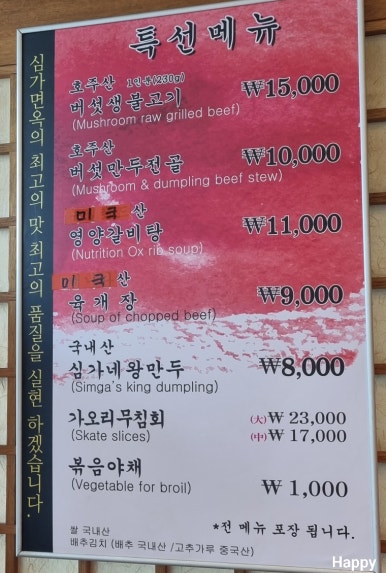 특선메뉴
심가면옥의 최고의 맛 최고의 품질을 실현 하겠습니다.
호주산 1인분(230g)
버섯생불고기 ₩15,000
(Mushroom raw grilled beef)
호주산
버섯만두전골 ₩10,000
(Mushroom & dumpling beef stew)
미국산
영양갈비탕 ₩11,000
(Nutrition Ox rib soup)
미국산
육개장 ₩9,000
(Soup of chopped beef)
국내산
심가네왕만두 ₩8,000
(Simga's king dumpling)
가오리무침회 (大) ₩ 23,000
(Skate slices) (中) ₩ 17,000
볶음야채
(Vegetable for broil) ₩ 1,000
*전 메뉴 포장 됩니다.
쌀 국내산
배추김치 (배추 국내산 /고추가루 중국산)
Happy